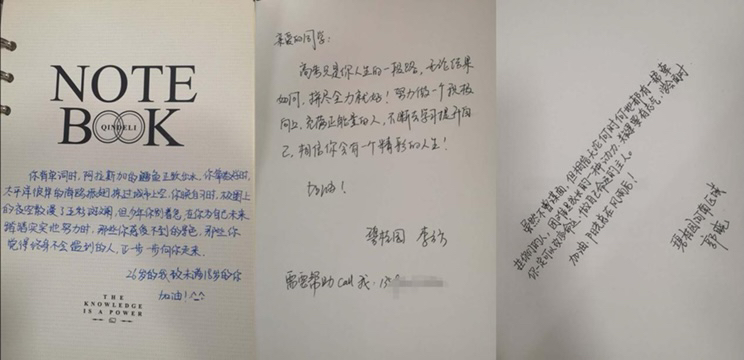 NOTE
BOOK
QINDELI
你背单词时,阿拉斯加的鳕鱼正跃出水,你算数学时,
太平洋彼岸的海鸥振翅掠过城市上空,你晚自习时,极圈上
的夜空散漫了五彩斑斓,但少年你别着急,在你为自己未来
踏踏实实地努力时,那些你感受不到的景色,那些你
觉得终身不会遇到的人,正一步一步向你走来。
26岁的我致未满18岁的你
加油!^^
THE
KNOWLEDGE
IS A POWER
亲爱的同学:
高考只是你人生的一段路,无论结果
如何,拼尽全力就好!努力做一个积极
向上,充满正能量的人,不断去学习提升自
己,相信你会有一个精彩的人生!
加油!
碧桂园 李
需要帮助 Call 我:15
虽然不曾谋面,但相信无论何时何地都有一群
挂你们的人,困难是成长的一种动力,关键要有志气,学会面对
你一定可以改变命运,做自己命运的主人。
加油 阳光总在风雨后!
碧桂园河南区域
郭